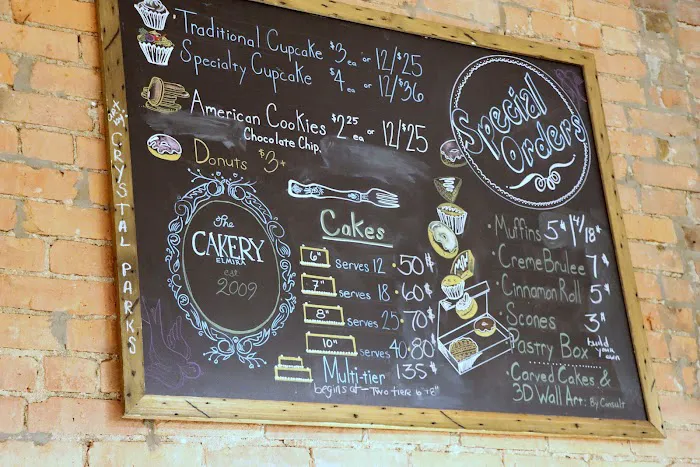 Traditional Cupcake $3 ea or 12/$25
Specialty Cupcake $4 ea or 12/$36
American Cookies $2.25 ea or 12/$25
Chocolate Chip
Donuts $3+
Special
Orders
the
CAKERY
ELMIRA
est
2009
Cakes
6" Serves 12 50$
7" Serves 18 60$
8" Serves 25 70$
10" Serves 40 80$
Multi-tier 135$
begins at - Two tier 6"8"
Muffins 5$ 4/18$
Creme Brulee 7$
Cinnamon Roll 5$
Scones 3$
Pastry Box build your own
Carved Cakes &
3D Wall Art: By Consult
Art by
CRYSTAL PARKS